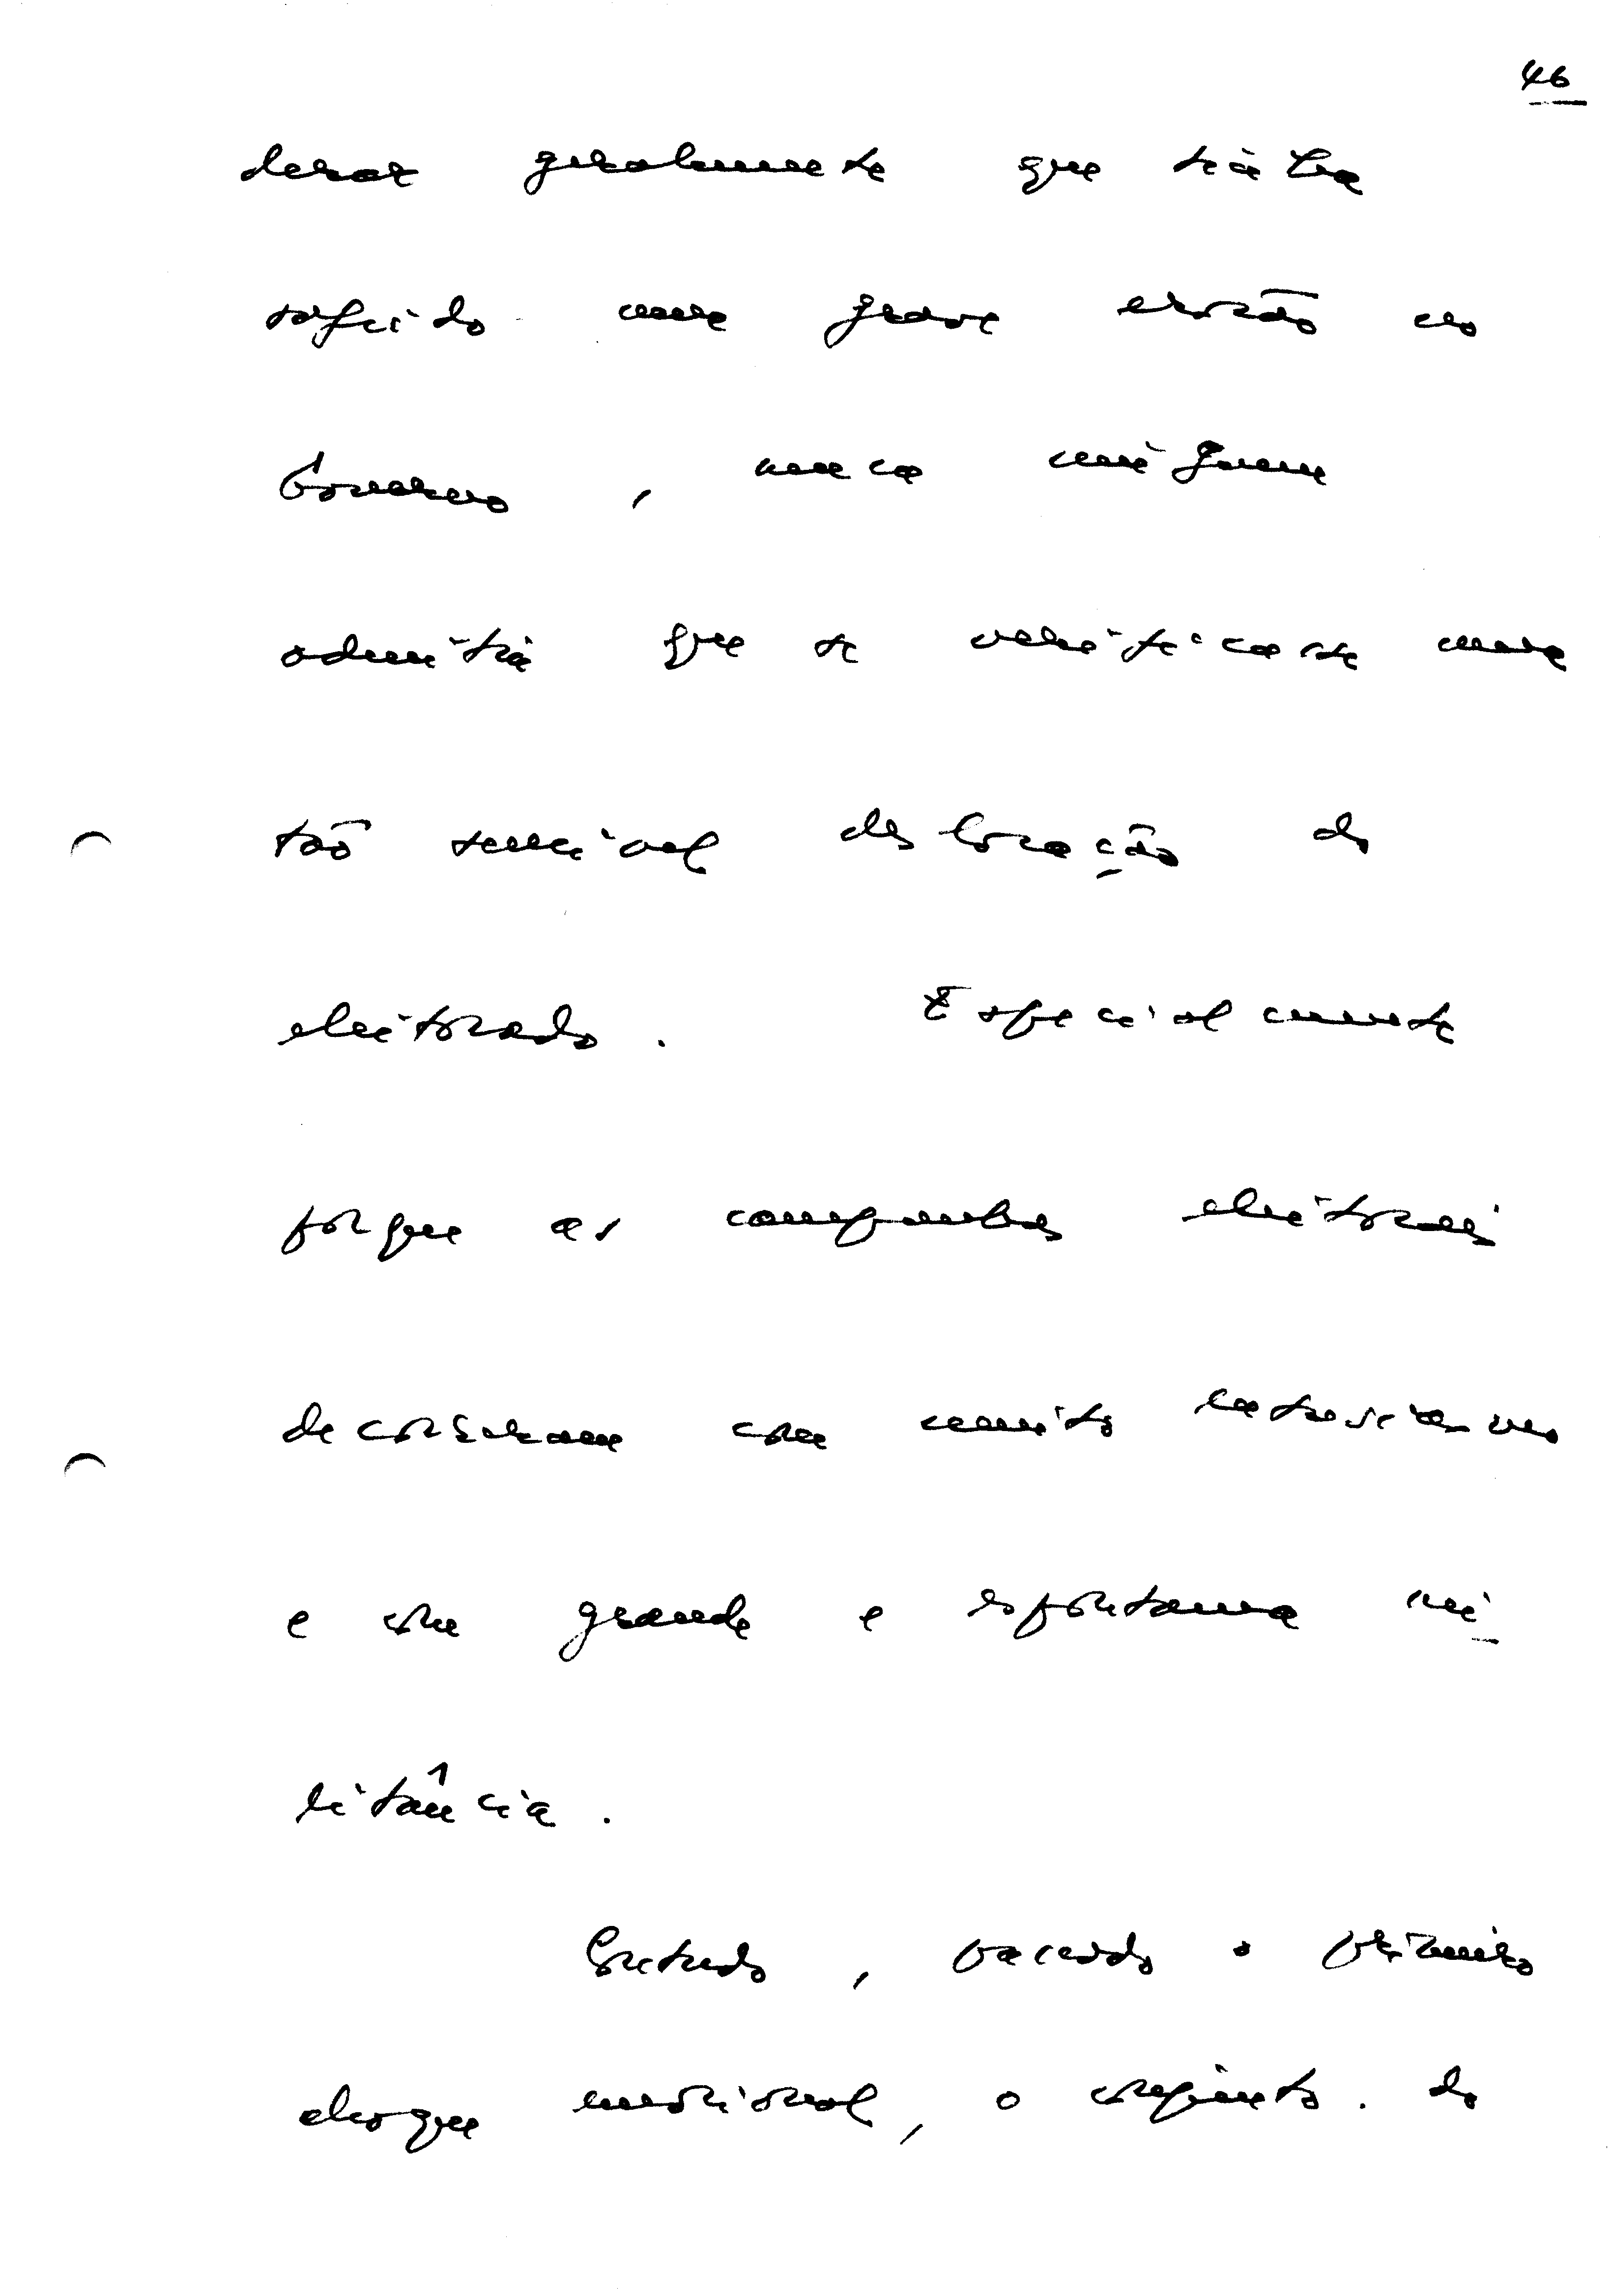 46
derar geralmente que tinha
sofrido uma grave erosão no
Governo, nunca ninguém
admitia que se verificasse uma
tão sensível deslocação do
eleitorado. Especialmente
porque as campanhas eleitorais
decorreram com muito entusiasmo
e com grande e espontanea mi
litância.
Contudo, passado o primeiro
choque emocional, o conjunto do